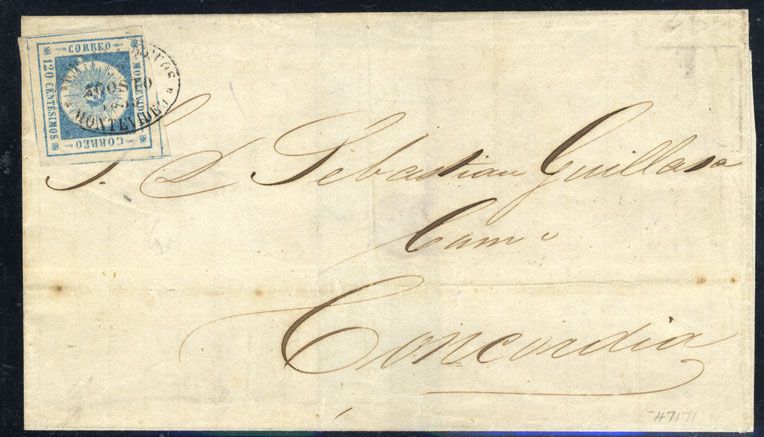 CORREO
120 CENTESIMOS
MONTEVIDEO
CORREO
AGOSTO
MONTEVIDEO
S. D. Sebastian Guillasa
Concordia